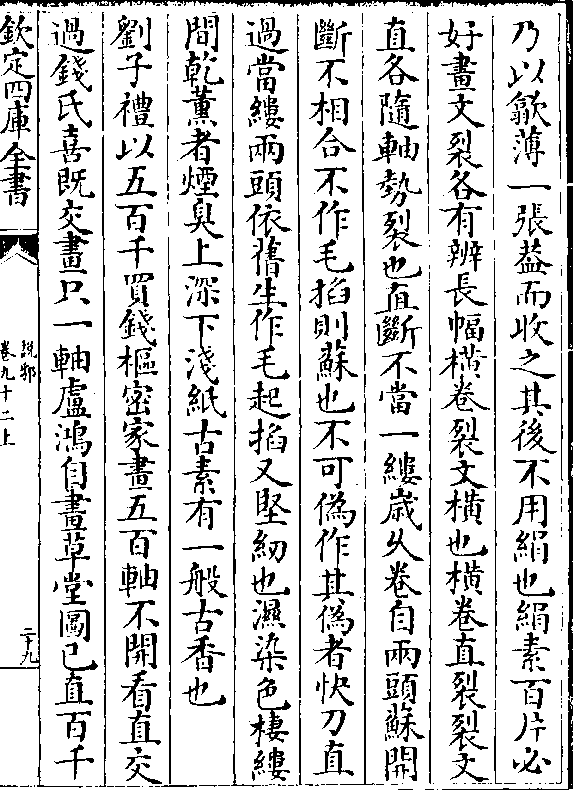 乃以歙薄一張葢而收之其後不用絹也絹素百片必
好畫文裂各有辨長幅横卷裂文横也横卷直裂裂文
直各隨軸勢裂也直斷不當一縷歳乆卷自兩頭蘇開
斷不相合不作毛掐則蘇也不可僞作其僞者快刀直
過當縷兩頭依舊生作毛起掐又堅紉也濕染色棲縷
間乾薰者煙臭上深下淺紙古素有一般古香也
劉子禮以五百千買錢樞密家畫五百軸不開看直交
過錢氏喜既交畫只一軸盧鴻自畫草堂圖已直百千
欽定四庫全書
說郛
卷九十二上
二十九